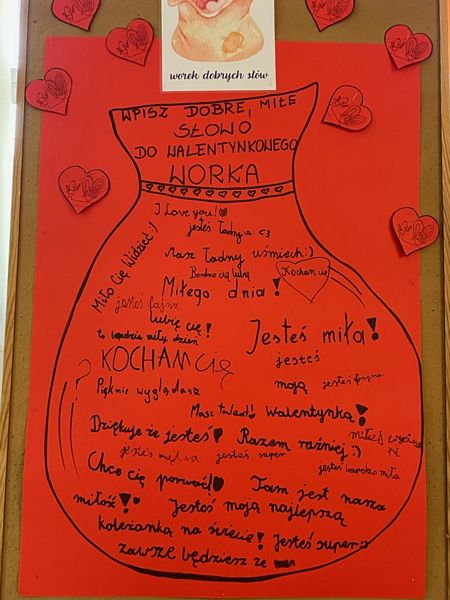 worek dobrych słów
WPISZ DOBRE, MIŁE
SŁOWO
DO WALENTYNKOWEGO
WORKA
I Love you!
jesteś ładna <3
Miło Cię Widzieć :)
Masz ładny uśmiech :)
Bardzo cię lubię
Kocham cię
Miłego dnia!
jesteś fajna
lubię cię!
to będzie miły dzień
Jesteś miła!
KOCHAM cię
jesteś
moją
jesteś fajna
Pięknie wyglądasz
Masz talent! Walentynką!
Dziękuję że jesteś Razem raźniej :)
miłej
jesteś mądra jesteś super
jesteś bardzo miła
Chcę cię porwać! Tam jest nasza
miłość! Jesteś moją najlepszą
koleżanką na świecie! Jesteś super :)
zawsze będziesz ze